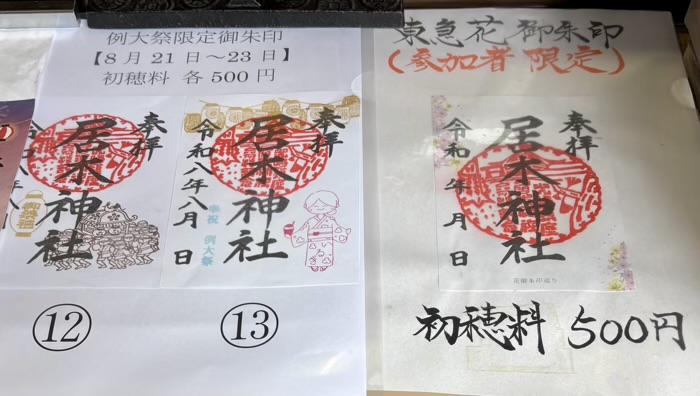 例大祭限定御朱印
【8月21日～23日】
初穂料 各500円
奉拝
居木神社
奉拝
居木神社
令和八年八月 日
奉祝 例大祭
⑫
⑬
東急花御朱印
(参加者限定)
奉拝
居木神社
令和 年 月 日
花御朱印巡り
初穂料 500円